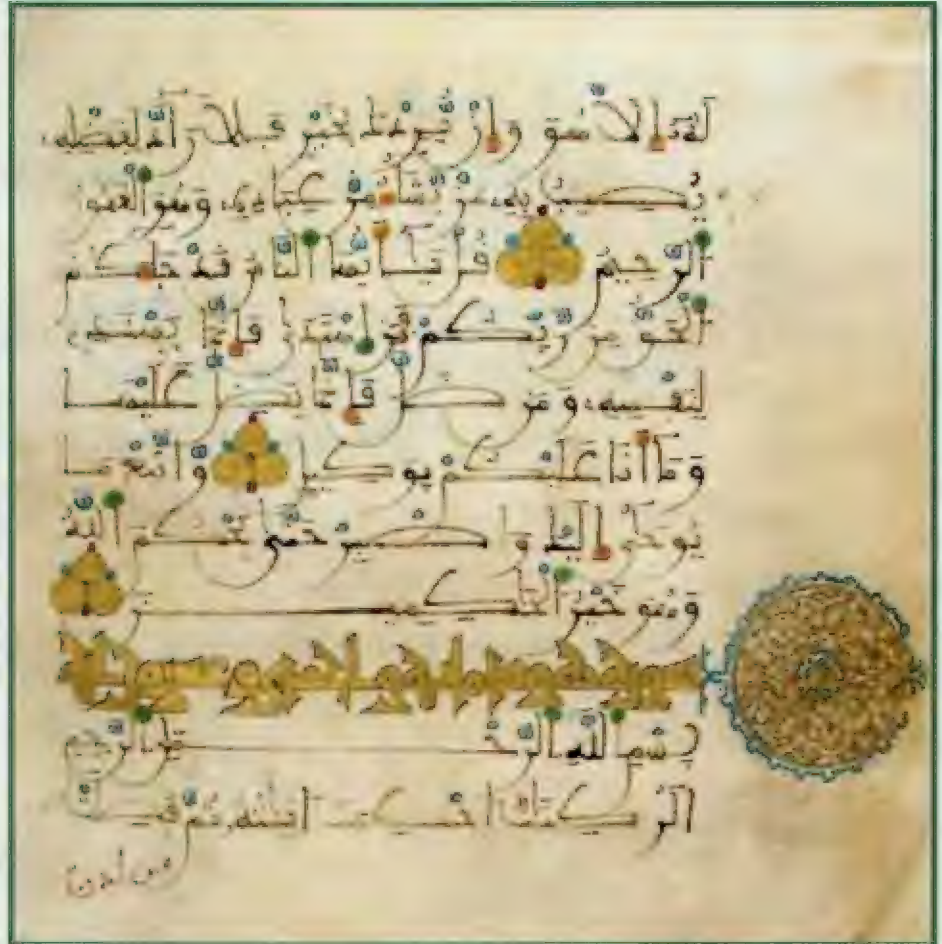 لهُ إلا هو وإن يردك بخير فلا رآد لفضله
يصيب به من يشاء من عباده وهو الغفور
الرحيم قل يأيها الناس قد جاءكم
الحق من ربكم فمن اهتدى فإنما يهتدي
لنفسه ومن ضل فإنما يضل عليها
وما أنا عليكم بوكيل واتبع ما
يوحى إليك واصبر حتى يحكم الله
وهو خير الحكمين
سورة هود
بسم الله الرحمن الرحيم
الر كتاب احكمت ايته ثم فصلت
من لدن